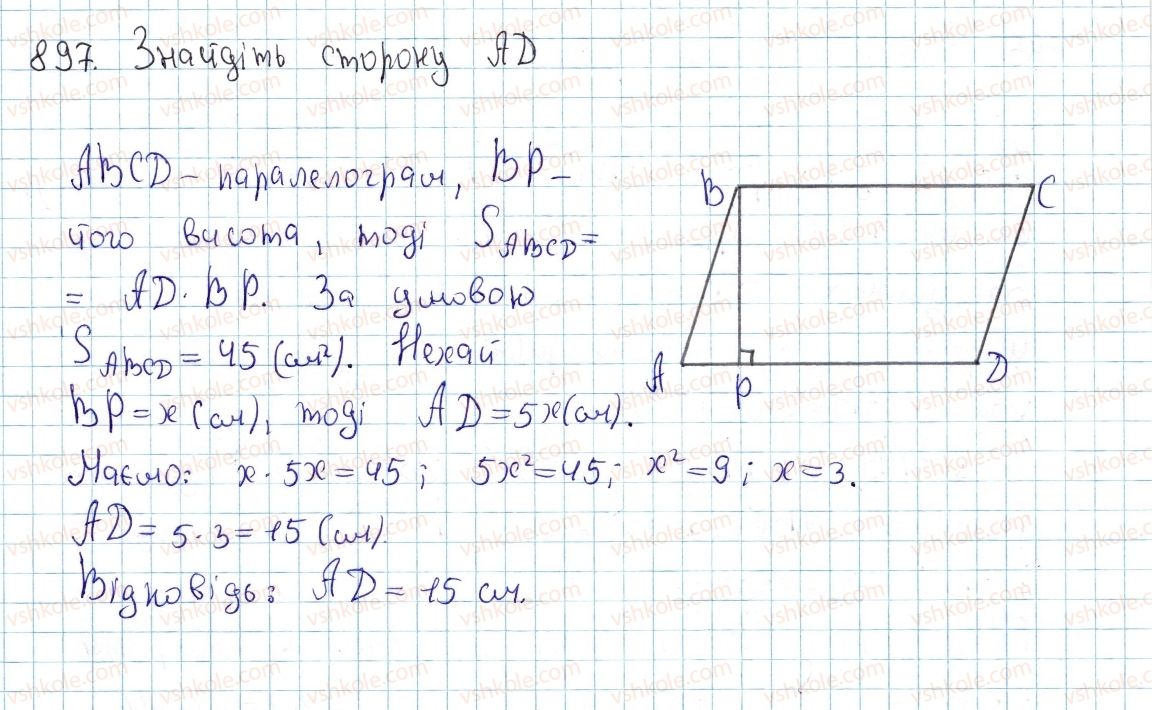 897. Знайдіть сторону AD
ABCD – паралелограм, BP –
його висота, тоді S_ABCD =
= AD · BP. За умовою
S_ABCD = 45 (см²). Нехай
BP = x (см), тоді AD = 5x (см).
Маємо: x · 5x = 45; 5x² = 45; x² = 9; x = 3.
AD = 5 · 3 = 15 (см).
Відповідь: AD = 15 см.
B
C
A
P
D
vshkole.com